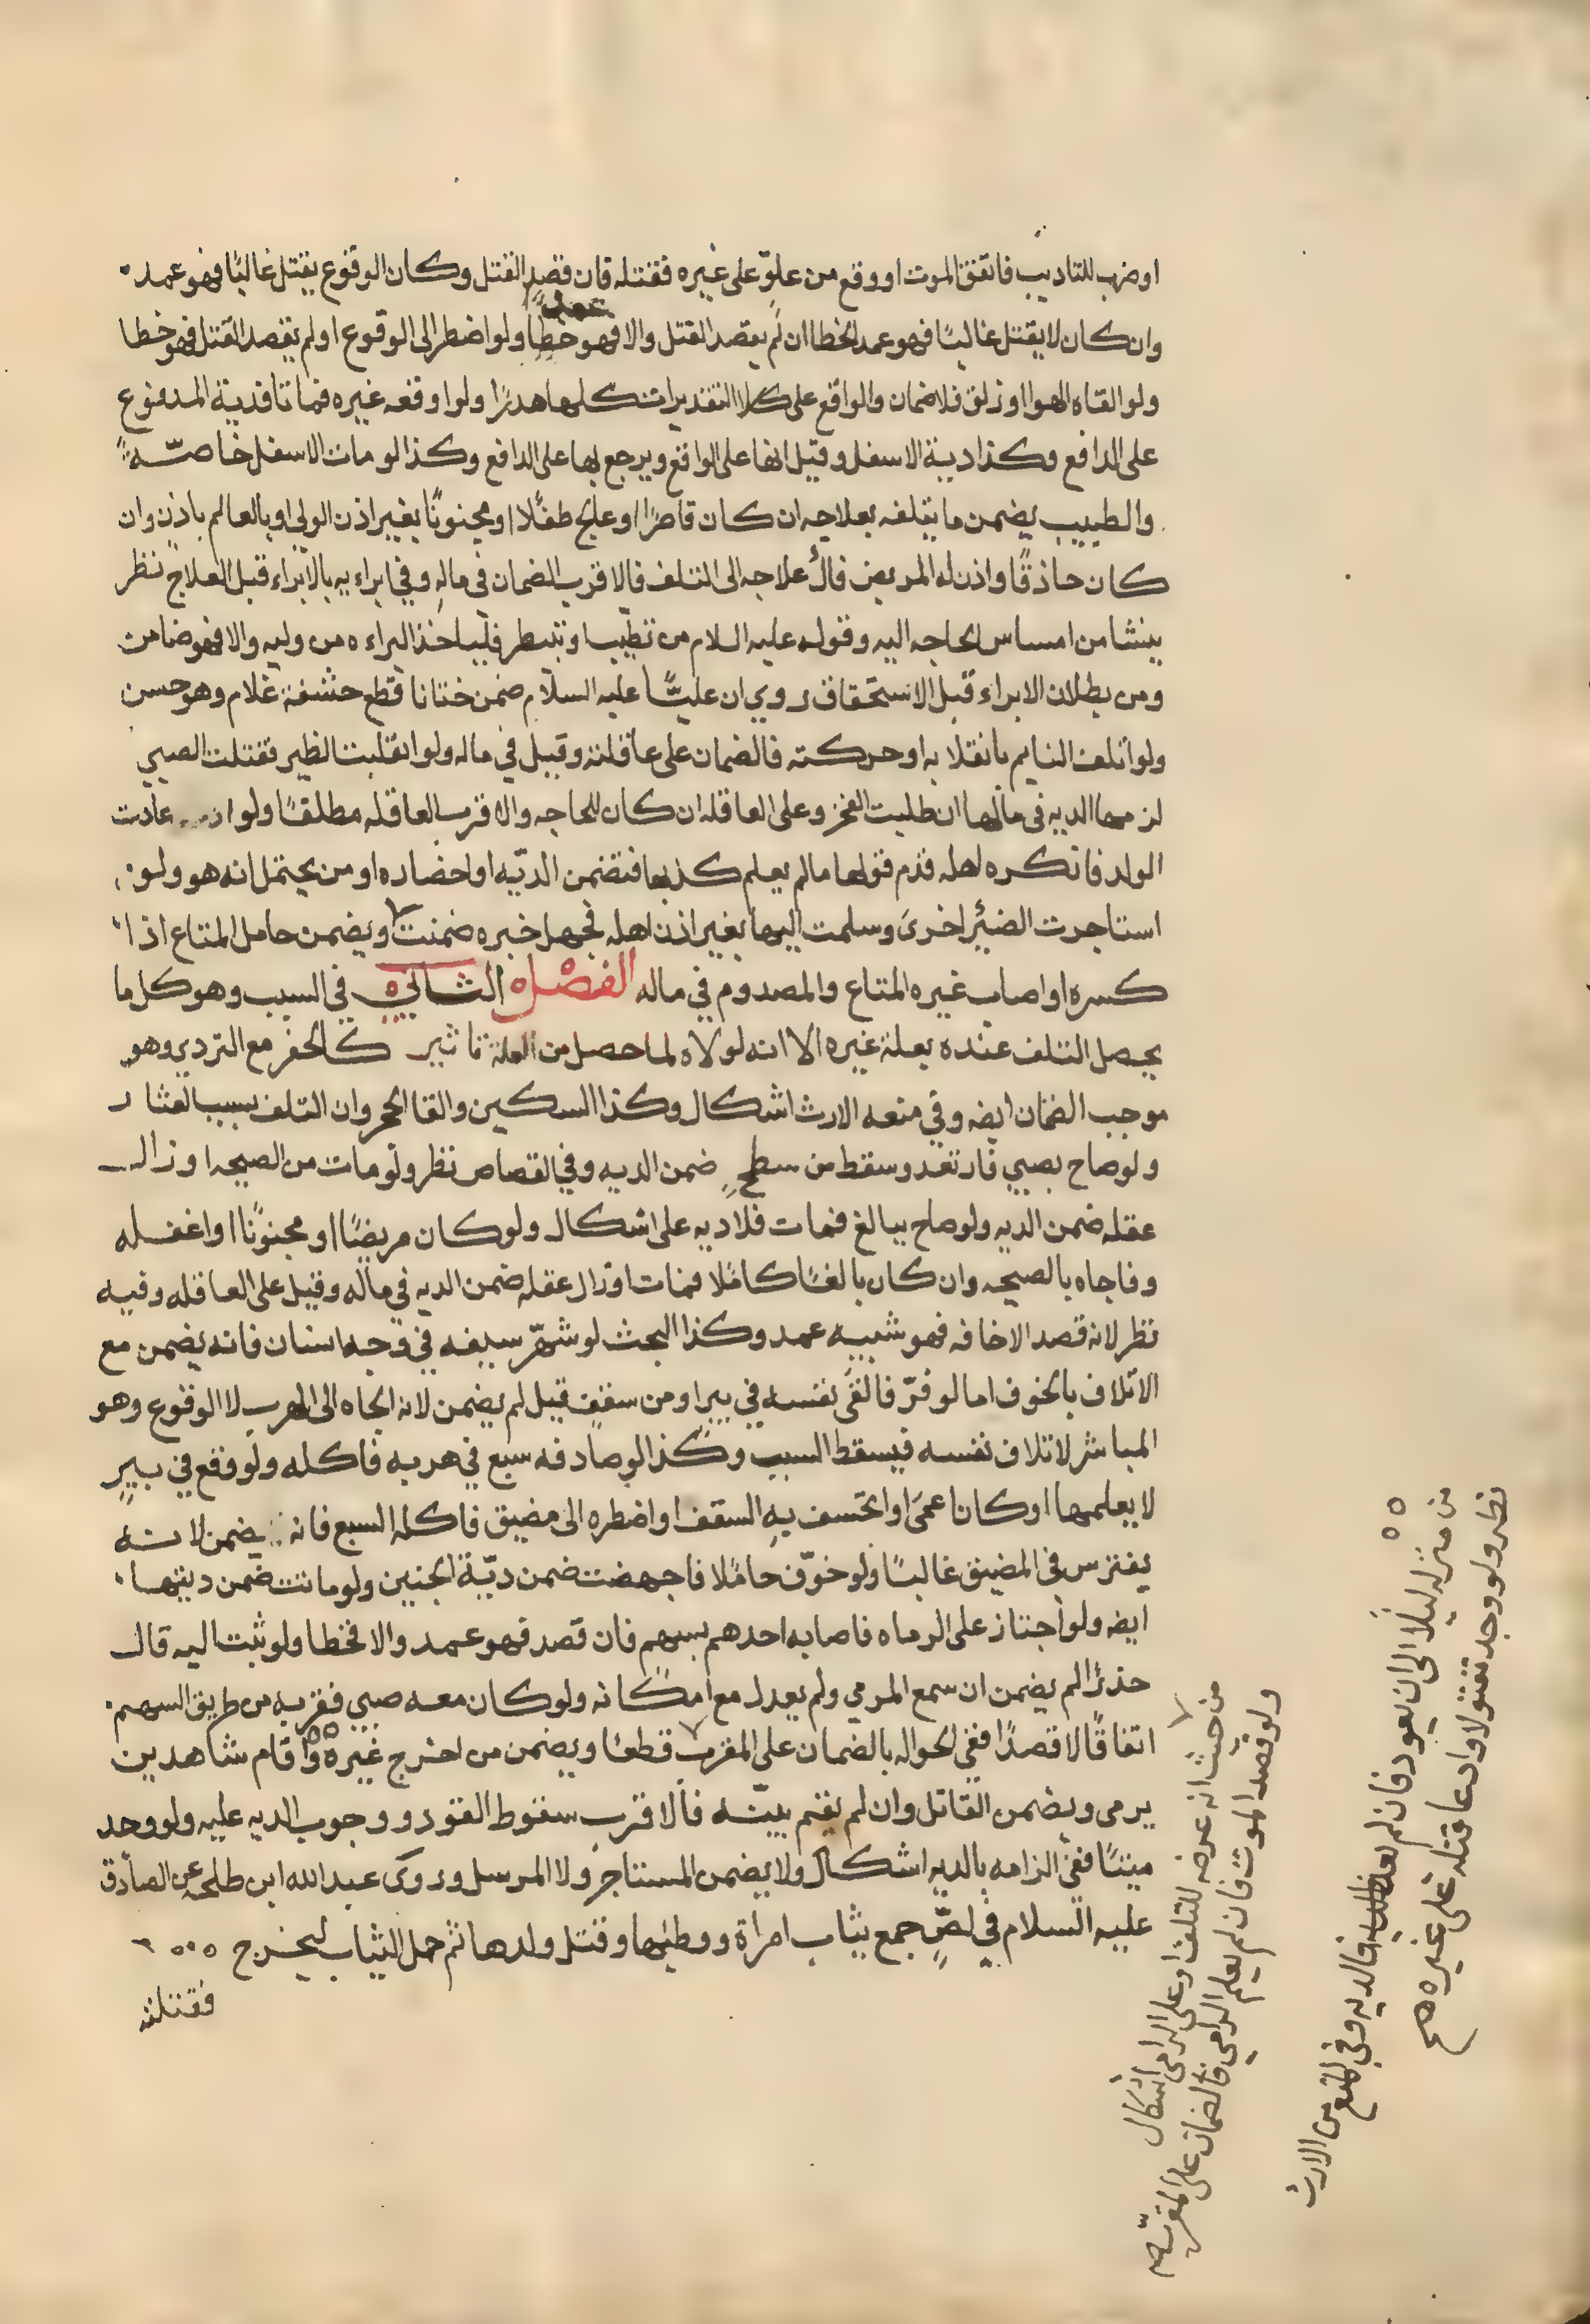 او ضرب للتاديب فاتفق الموت او وقع من علوّ على غيره فقتله فان قصد القتل وكان الوقوع يقتل غالبًا فهو عمد
وان كان لا يقتل غالبًا فهو عمد الخطا ان لم يقصد القتل والا فهو عمد ولو اضطر الى الوقوع او لم يقصد القتل فهو خطا
ولو القاه الهوا او زلق فلا ضمان والواقع على كلا التقديرات كلها هدرًا ولو اوقعه غيره فماتا فدية المدفوع
على الدافع وكذا دية الاسفل وقيل انها على الواقع ويرجع بها على الدافع وكذا لو مات الاسفل خاصّةً
والطبيب يضمن ما يتلفه بعلاجه ان كان قاصرًا او عالج طفلًا او مجنونًا بغير اذن الولى او بالعالم باذن وان
كان حاذقًا واذن له المريض فال علاجه الى التلف فالاقرب الضمان في ماله وفي ابراءيه بالابراء قبل العلاج نظر
ينشا من امساس الحاجه اليه وقوله عليه السلام من تطبب او تبيطر فلياخذ البراءه من وليه والا فهو ضامن
ومن بطلان الابراء قبل الاستحقاق روي ان عليًّا عليه السلام ضمن ختانا قطع حشفة غلام وهو حسن
ولو اتلف النايم بانقلابه او حركته فالضمان على عاقلته وقيل في ماله ولو انقلبت الظير فقتلت الصبي
لزمها الديه فى مالها ان طلبت الفخر وعلى العاقله ان كان للحاجه والاقرب العاقله مطلقًا ولو عادت
الولد فانكره اهله قدم قولها مالم يعلم كذبها فتضمن الديّه او احضاره او من يحتمل انه هو ولو
استاجرت الضير اخرى وسلمت اليها بغير اذن اهله فجهل خبره ضمنت ويضمن حامل المتاع اذا
كسره او اصاب غيره المتاع والمصدوم في ماله الفصل الثاني في السبب وهو كل ما
يحصل التلف عنده بعلة غيره الا انه لولاه لما حصل من العلة تاثير كالحفر مع التردي وهو
موجب الضمان ايضه وفي منعه الارث اشكال وكذا السكين والقا الحجر وان التلف بسبب العثار
ولو صاح بصبي فارتعد وسقط من سطحٍ ضمن الديه وفي القصاص نظر ولو مات من الصيحه او زال
عقله ضمن الديه ولو صاح ببالغ فمات فلاديه على اشكال ولو كان مريضًا او مجنونًا او اغفله
وفاجاه بالصيحه وان كان بالغًا كاملًا فمات او زال عقله ضمن الديه في ماله وقيل على العاقله وفيه
نظر لانه قصد الاخافه فهو شبيه عمد وكذا البحث لو شهّر سيفه في وجه انسان فانه يضمن مع
الاتلاف بالخوف اما لو فرّ فالقى نفسه في بيرٍ او من سقفٍ قيل لم يضمن لانه الجاه الى الهرب لا الوقوع وهو
المباشر لاتلاف نفسه فيسقط السبب وكذا لو صادفه سبع في هربه فاكله ولو وقع في بيرٍ
لا يعلمها او كان اعمى او انخسف به السقف او اضطره الى مضيق فاكله السبع فانه يضمن لانه
يفترس في المضيق غالبًا ولو خوّف حاملًا فاجهضت ضمن ديّة الجنين ولو ماتت ضمن ديتها
ايضه ولو اجتاز على الرماه فاصابه احدهم بسهم فان قصد فهو عمد والا فخطا ولو ثبت اليه قال
حذرًا لم يضمن ان سمع المرمي ولم يعدل مع امكانه ولو كان معه صبي فقربه من طريق السهم
اتفاقًا لا قصدًا ففي الحواله بالضمان على المقرب قطعًا ويضمن من اخرج غيره اقام شاهدين
يرمى ويضمن القاتل وان لم يقم بيّنه فالاقرب سقوط القود ووجوب الديه عليه ولو وجد
ميتًا ففي الزامه بالديه اشكال ولا يضمن المستاجر ولا المرسل وروى عبد الله ابن طلحه عن الصادق
عليه السلام في لصٍّ جمع ثياب امراة ووطئها وقتل ولدها ثم حمل الثياب ليخرج
فقتلته
من حيث انه عرضه للتلف او على الرامي اشكال
ولو قصد الموت فان لم يعلم الرامي فالضمان على المقرّب صح
من منزله ليلًا الى ان يعود فان لم يعد فالديه وفي المنع من الارث
نظر ولو وجد مقتولا وادعا قتله على غيره صح